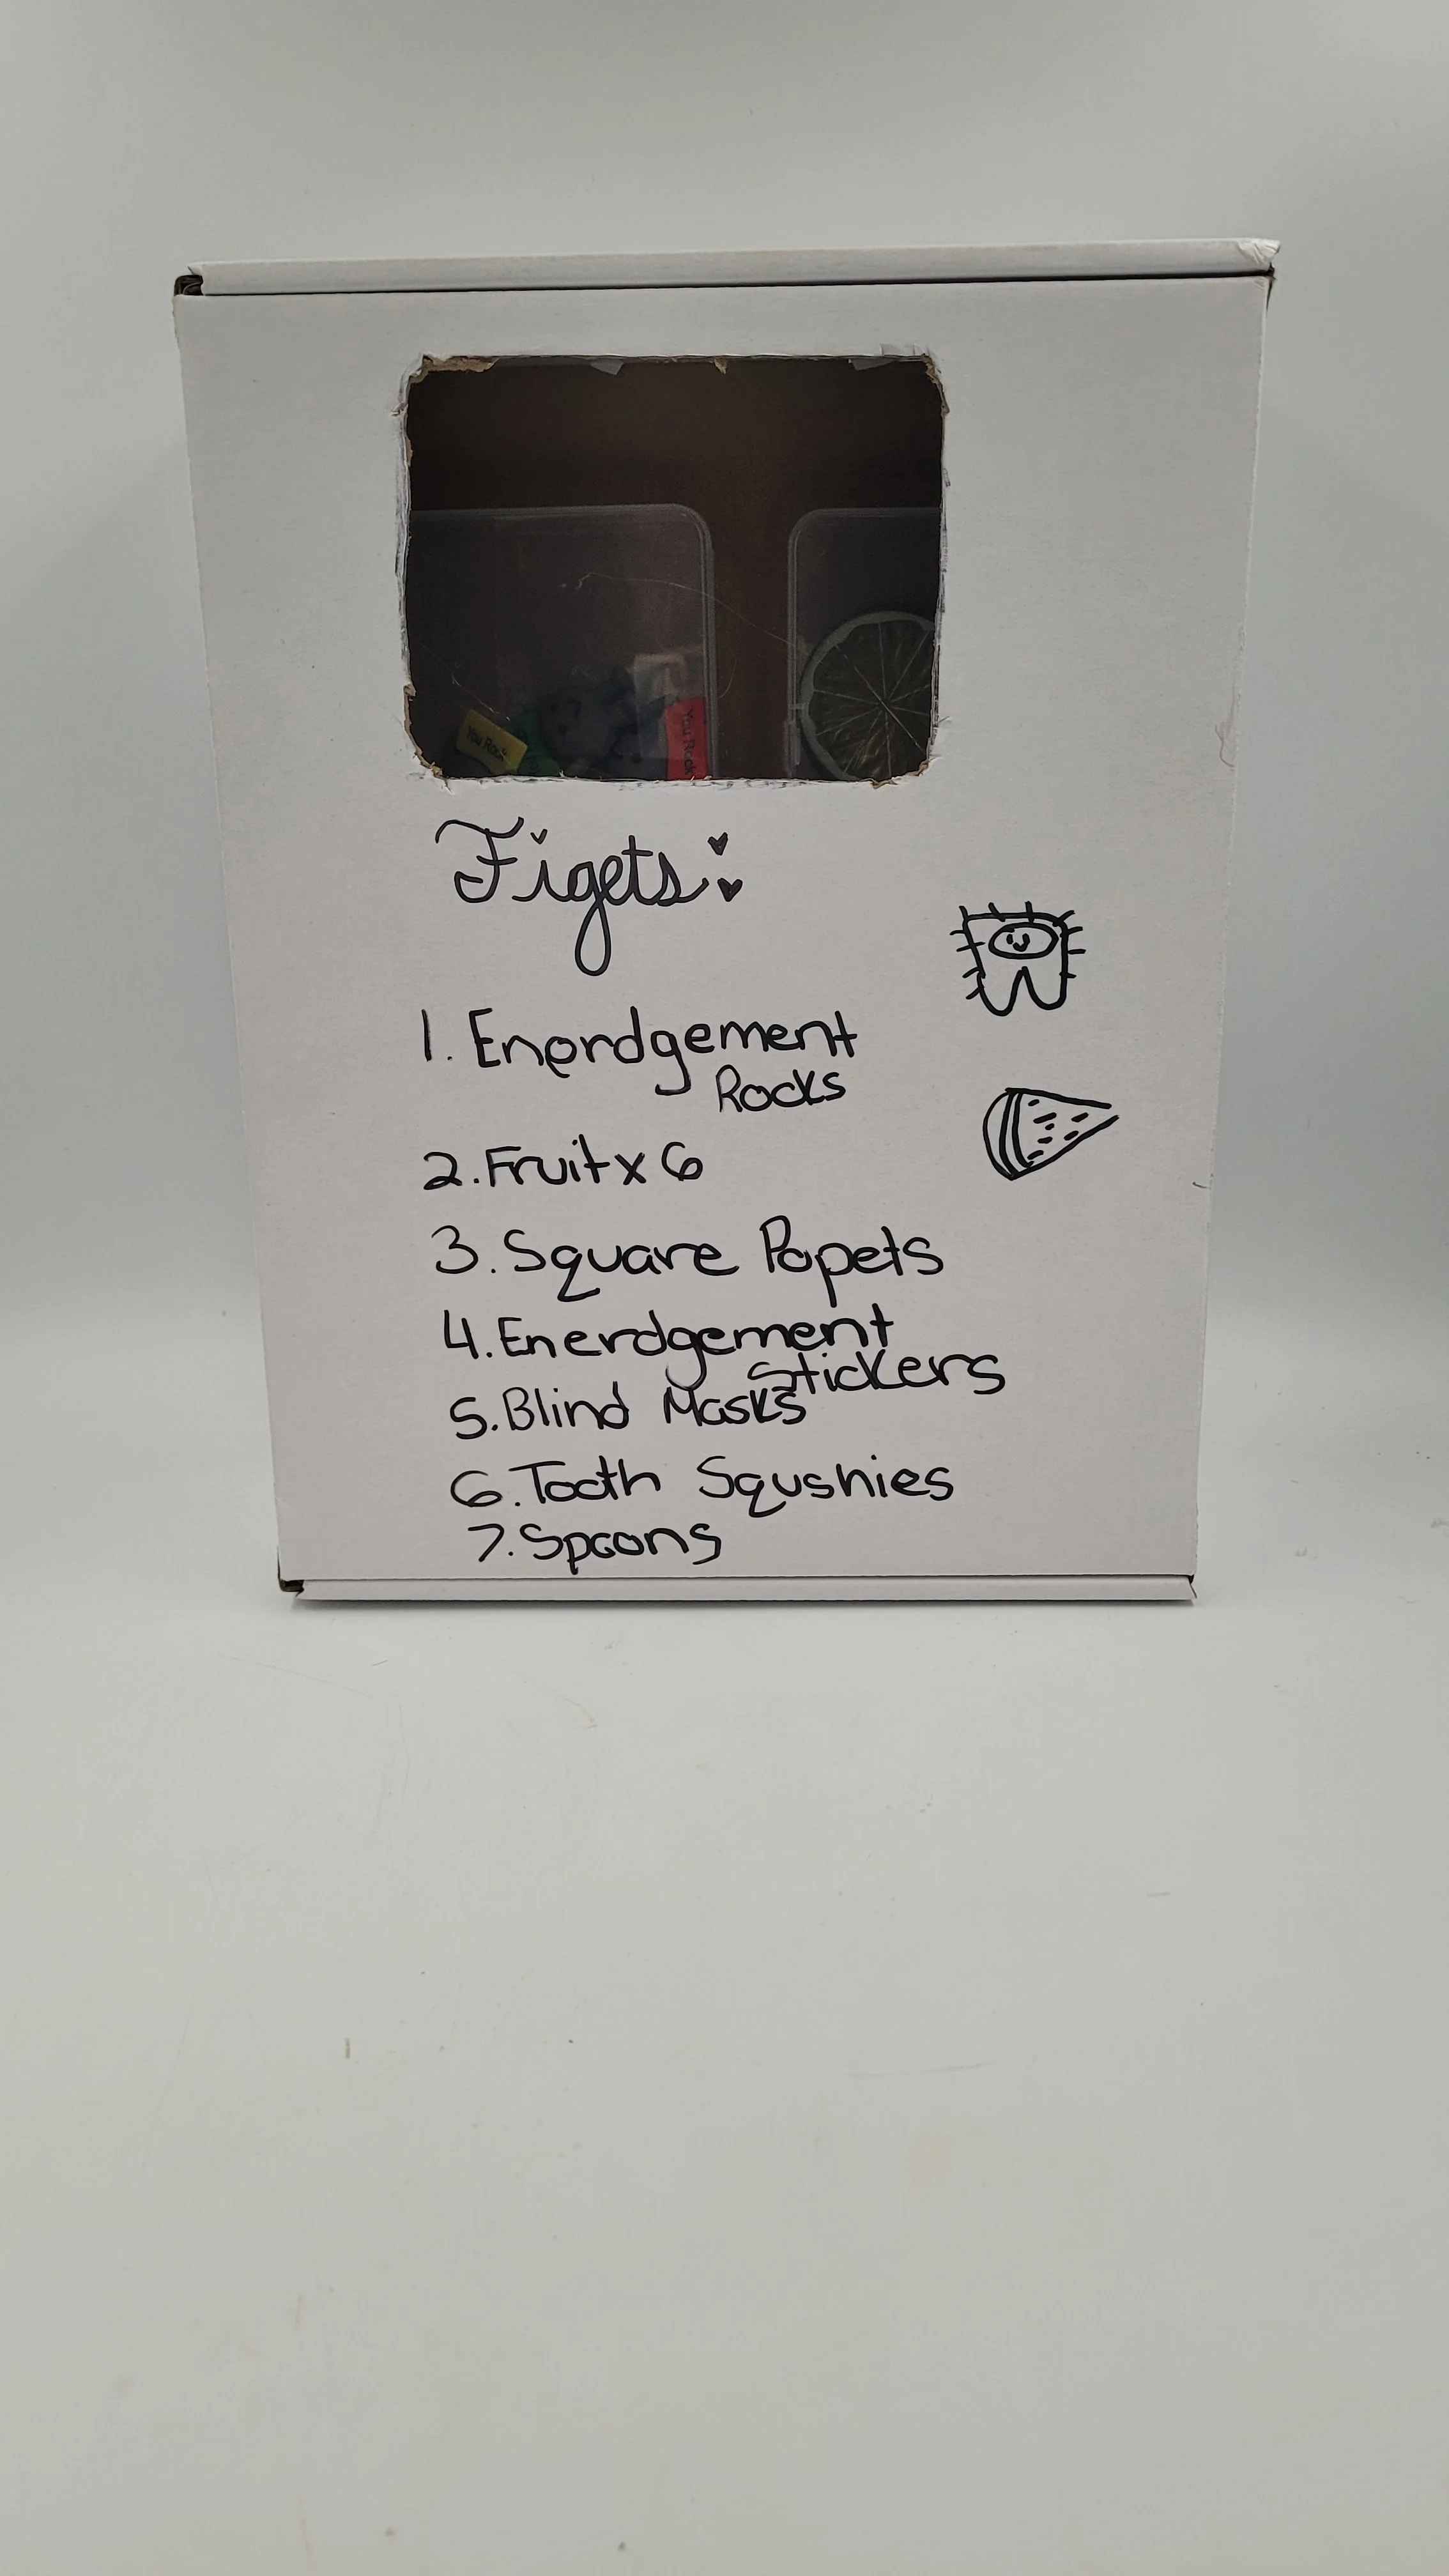 You Rock
You Rock
Figets:
1. Enordgement
Rocks
2. Fruit x 6
3. Square Popets
4. Enerdgement
Stickers
5. Blind Masks
6. Tooth Squshies
7. Spoons